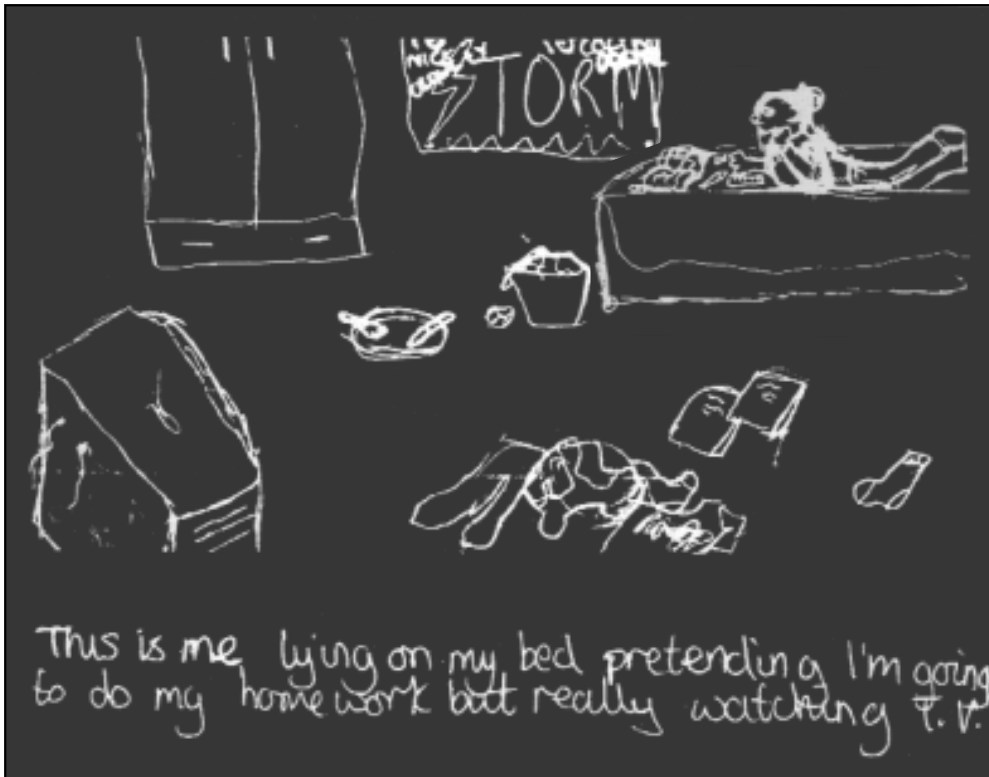 STORM
This is me lying on my bed pretending I'm going
to do my homework but really watching T.V.